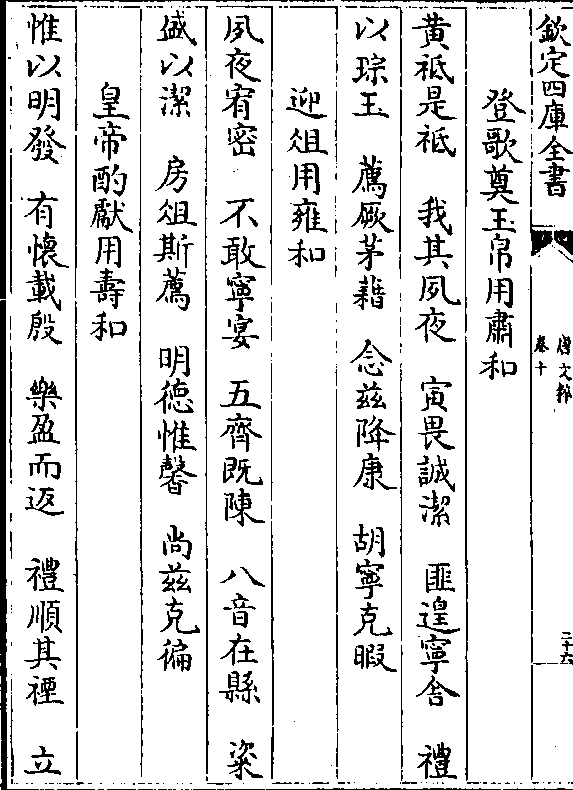 欽定四庫全書
唐文粹
卷十
二十六
登歌奠玉帛用肅和
黄祗是祗　我其夙夜　寅畏誠潔　匪遑寧舍　禮
以琮玉　薦厥茅藉　念兹降康　胡寧克暇
迎俎用雍和
夙夜宥密　不敢寧宴　五齊既陳　八音在縣　粢
盛以潔　房俎斯薦　明德惟馨　尚兹克徧
皇帝酌獻用壽和
惟以明發　有懷載殷　樂盈而返　禮順其禋　立